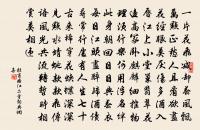 一片花飛減却春風飄
萬點正愁人且看欲盡
花經眼莫厭傷多酒入
唇江上小堂巢翡翠花
邊高塚臥麒麟細推物
理須行樂何用浮名絆
此身朝回日日典春衣
每日江頭盡醉歸酒債
尋常行處有人生七十
古來稀穿花蛺蝶深深
見點水蜻蜓款款飛傳
語風光共流轉暫時相
賞莫相違
杜甫曲江二首